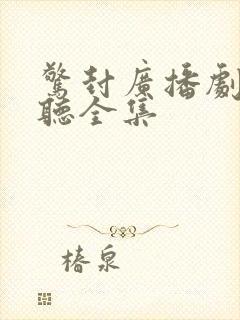 驚封廣播劇
聽全集
椿泉